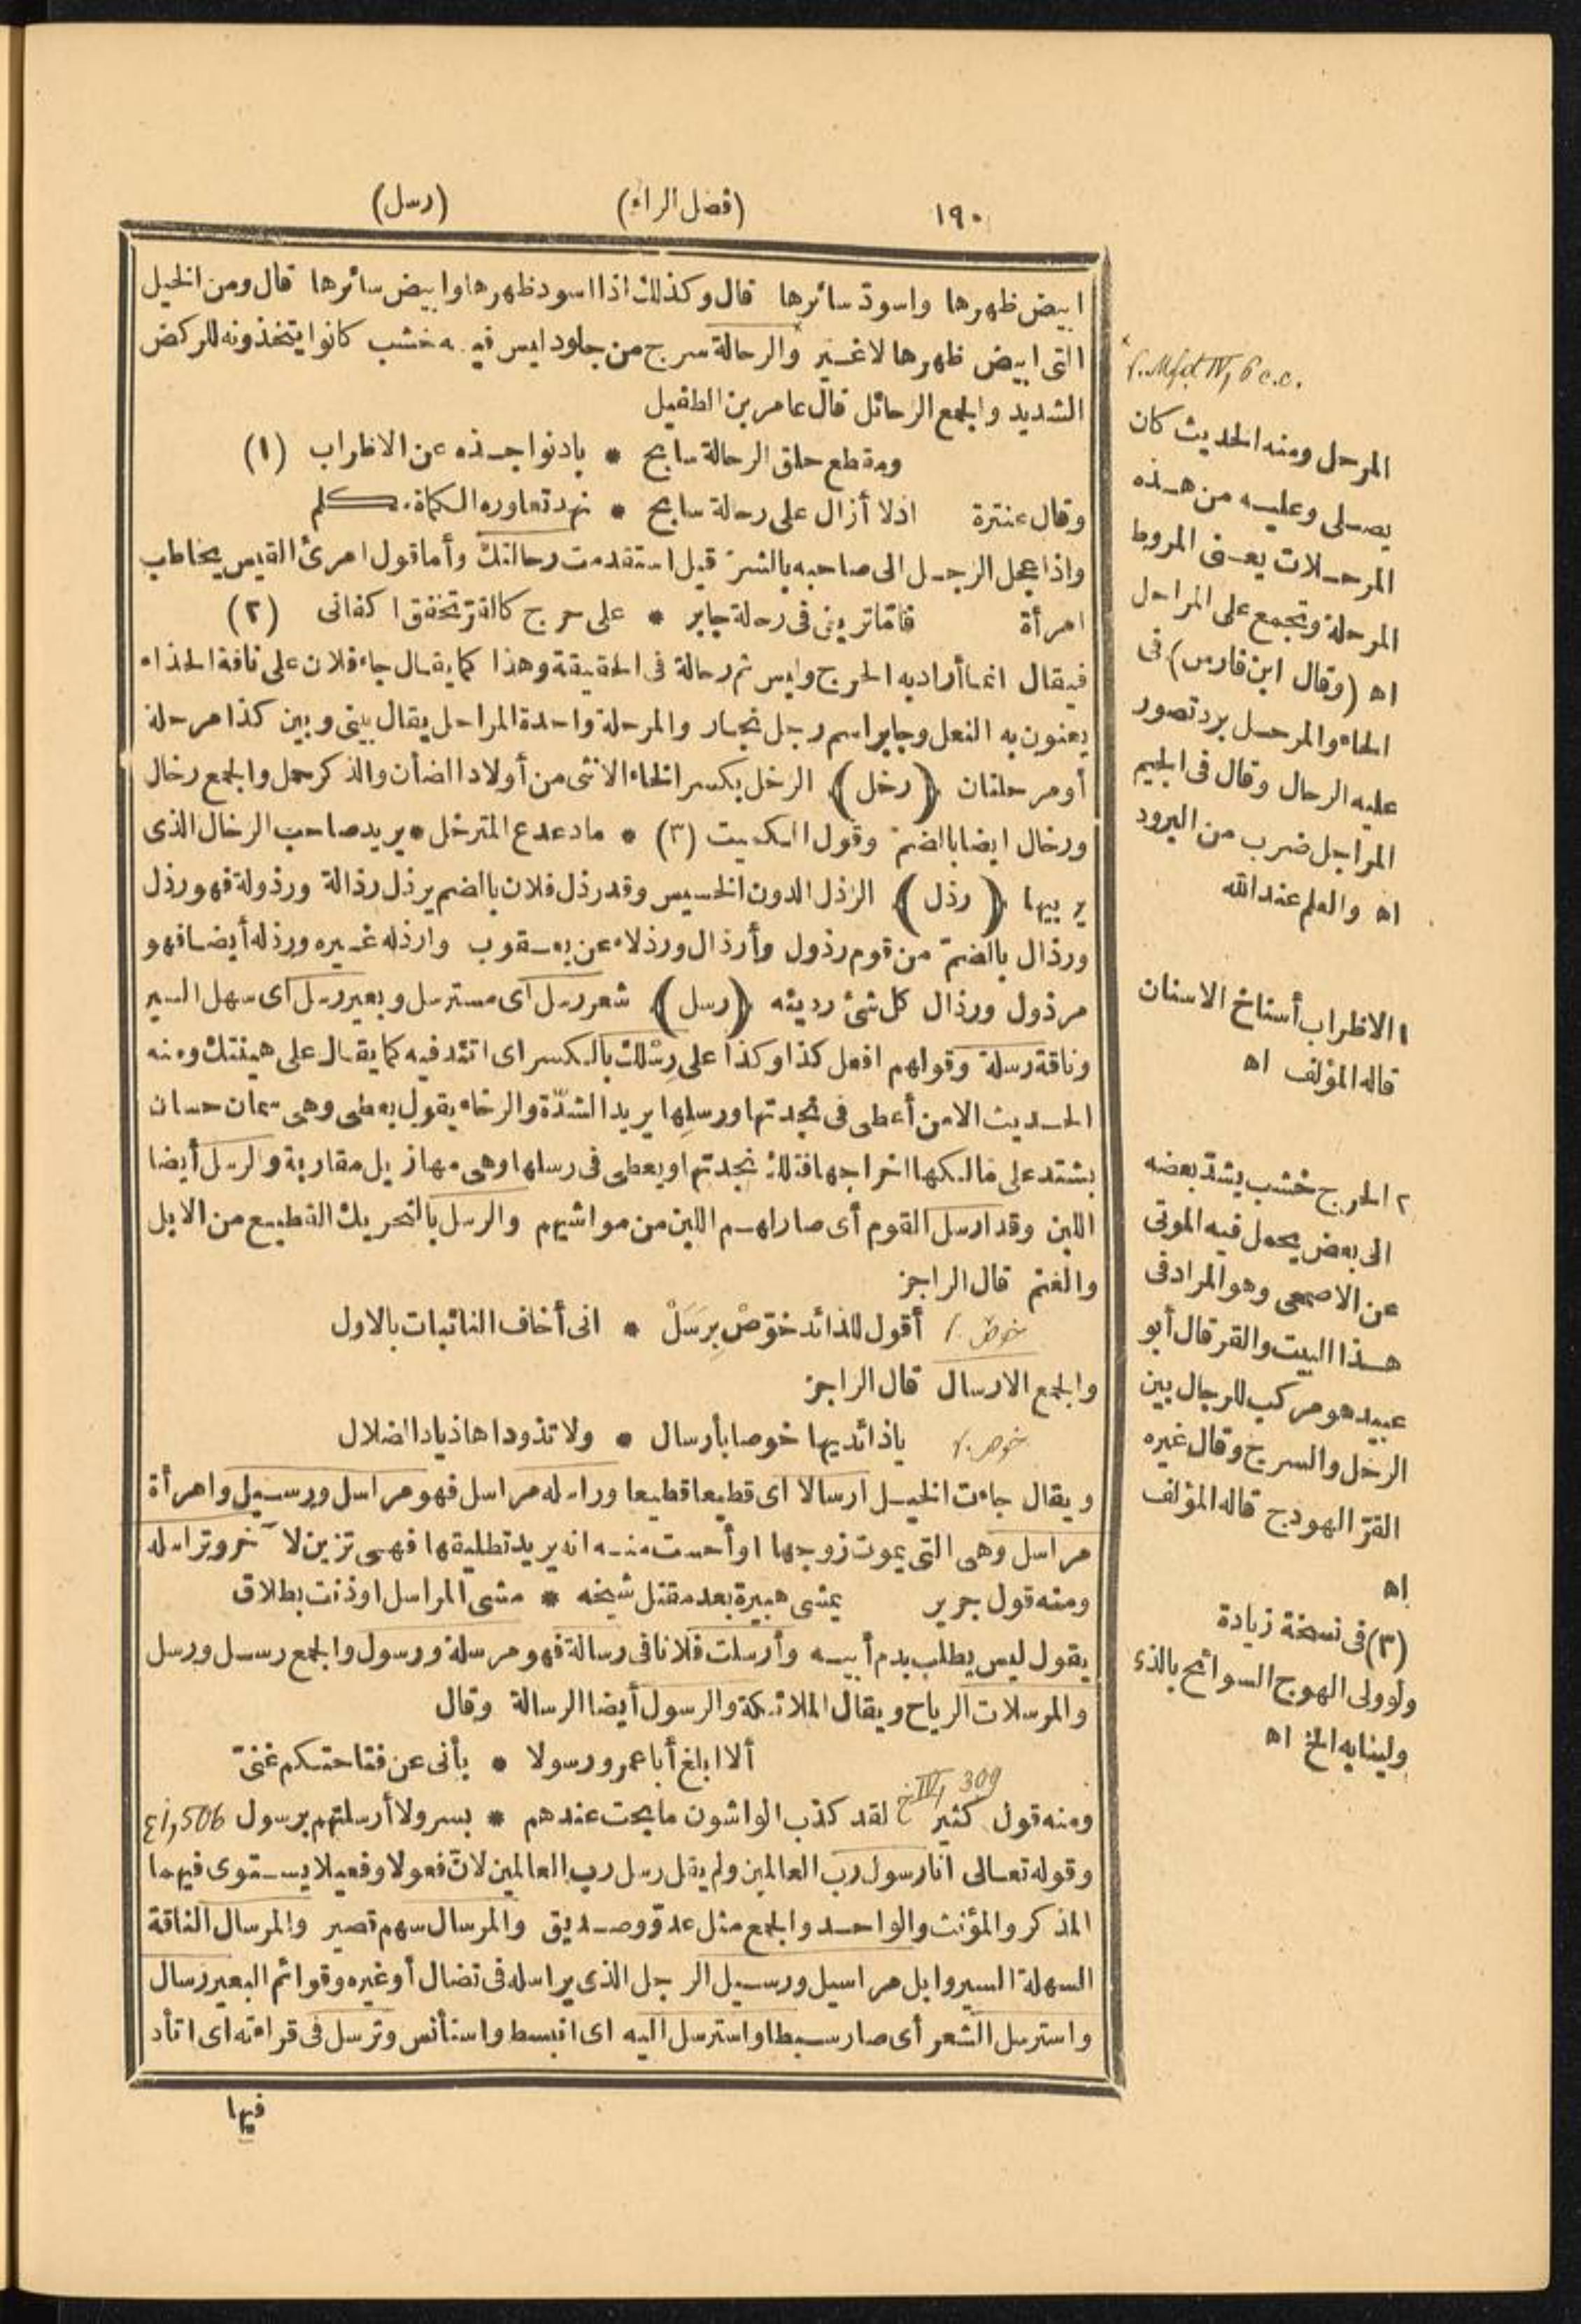 ١٩٠ (فصل الراء) (رسل)
ابيض ظهرها واسودّ سائرها قال وكذلك اذا اسود ظهرها وابيض سائرها قال ومن الخيل
التى ابيض ظهرها لا غير والرحالة سرج من جلود ليس فيه خشب كانوا يتخذونه للركض
الشديد والجمع الرحائل قال عامر بن الطفيل
ومقطع حلق الرحالة سابح * باد نواجذه عن الاظراب (١)
وقال عنترة اذ لا أزال على رحالة سابح * نهد تعاوره الكماة مكلم
واذا عجل الرجل الى صاحبه بالشرّ قيل استقدمت رحالتك وأما قول امرئ القيس يخاطب
امرأة فامّا ترينى فى رحلة جابر * على حرج كالقرّ تخفق اكفانى (٢)
فيقال انما أراد به الحرج وليس ثم رحالة فى الحقيقة وهذا كما يقال جاء فلان على ناقة الحذاء
يعنون به النعل وجابر اسم رجل نجار والمرحلة واحدة المراحل يقال بينى وبين كذا مرحلة
أو مرحلتان (رخل) الرخل بكسر الخاء الانثى من أولاد الضأن والذكر حمل والجمع رخال
ورخال ايضا بالضم وقول الكميت (٣) * ما دعدع المترخل * يريد صاحب الرخال الذى
يربيها (رذل) الرذل الدون الخسيس وقد رذل فلان بالضم يرذل رذالة ورذولة فهو رذل
ورذال بالضمّ من قوم رذول وأرذال ورذلاء عن يعقوب وارذله غيره ورذله أيضا فهو
مرذول ورذال كل شئ رديئه (رسل) شعر رسل أى مسترسل وبعير رسل أى سهل السير
وناقة رسلة وقولهم افعل كذا وكذا على رِسْلك بالكسر اى اتئد فيه كما يقال على هينتك ومنه
الحديث الا من أعطى فى نجدتها ورسلِها يريد الشدّة والرخاء يقول يعطى وهى سمان حسان
يشتد على مالكها اخراجها فتلك نجدتها ويعطى فى رسلها وهى مهازيل مقاربة والرسل أيضا
اللبن وقد ارسل القوم أى صار لهم اللبن من مواشيهم والرسل بالتحريك القطيع من الابل
والغنم قال الراجز
خوص أقول للذائد خوّصْ بِرَسَلْ * انى أخاف النائبات بالاول
والجمع الارسال قال الراجز
خوص يا ذائديها خوصا بأرسال * ولا تذوداها ذياد الضلال
ويقال جاءت الخيل ارسالا اى قطيعا قطيعا وراسله مراسل فهو مراسل ورسيل وامرأة
مراسل وهى التى يموت زوجها او أحست منه انه يريد تطليقها فهى تزين لآخر وتراسله
ومنه قول جرير يمشى هبيرة بعد مقتل شيخه * مشى المراسل اوذنت بطلاق
يقول ليس يطلب بدم أبيه وأرسلت فلانا فى رسالة فهو مرسلة ورسول والجمع رسل ورسل
والمرسلات الرياح ويقال الملائكة والرسول أيضا الرسالة وقال
ألا ابلغ أبا عمرو رسولا * بأنى عن فتاحتكم غنىّ
IV, 309
ومنه قول كثير لقد كذب الواشون ما بحت عندهم * بسر ولا أرسلتهم برسول i, 506
وقوله تعالى انا رسول رب العالمين ولم يقل رسل رب العالمين لانّ فعولا وفعيلا يستوى فيهما
المذكر والمؤنث والواحد والجمع مثل عدوّ وصديق والمرسال سهم قصير والمرسال الناقة
السهلة السير وابل مراسيل ورسيل الرجل الذى يراسله فى نضال أو غيره وقوائم البعير رسال
واسترسل الشعر أى صار سبطا واسترسل اليه اى انبسط واستأنس وترسل فى قراءته اى اتأد
فيها
IV, 6 c.c.
المرحل ومنه الحديث كان
يصلى وعليه من هذه
المرحلات يعنى المروط
المرحلة وتجمع على المراحل
اه (وقال ابن فارس) فى
الحاء والمرحل برد تصور
عليه الرحال وقال فى الجيم
المراجل ضرب من البرود
اه والعلم عند الله
١ الاظراب أسناخ الاسنان
قاله المؤلف اه
٢ الحرج خشب يشدّ بعضه
الى بعض يحمل فيه الموتى
عن الاصمعى وهو المراد فى
هذا البيت والقر قال أبو
عبيد هو مركب للرجال بين
الرحل والسرج وقال غيره
القرّ الهودج قاله المؤلف
اه
(٣) فى نسخة زيادة
ولو ولى الهوج السوائح بالذى
ولينا به الخ اه